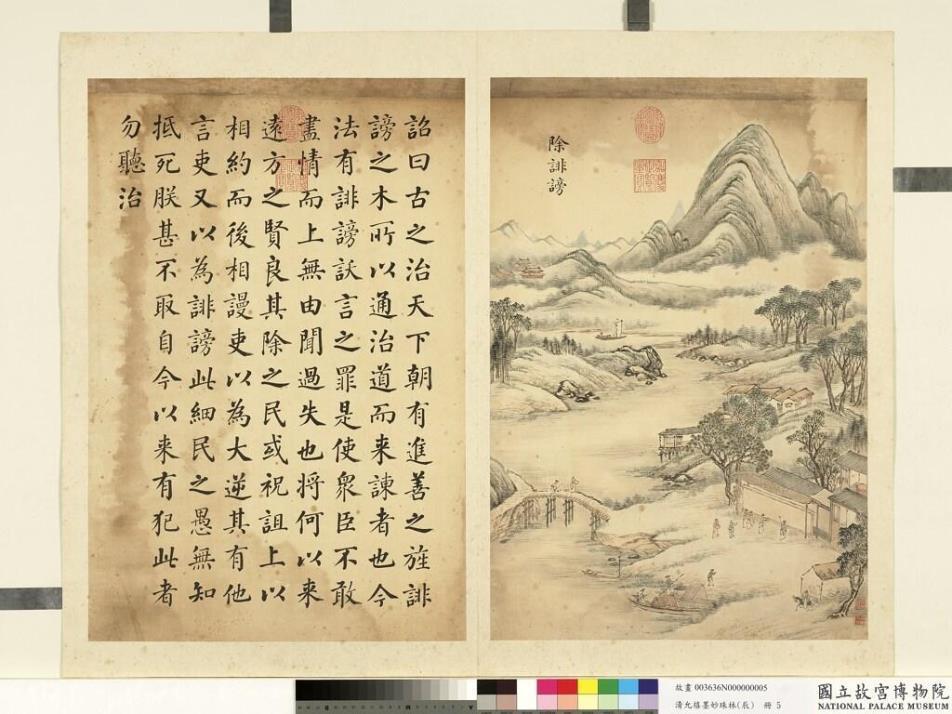 除誹謗
詔曰古之治天下朝有進善之旌誹
謗之木所以通治道而来諫者也今
法有誹謗訞言之罪是使衆臣不敢
盡情而上無由聞過失也将何以来
遠方之賢良其除之民或祝詛上以
相約而後相謾吏以為大逆其有他
言吏又以為誹謗此細民之愚無知
抵死朕甚不取自今以来有犯此者
勿聽治
故畫 003636N000000005
清允禧墨妙珠林(辰) 冊 5
國立故宮博物院
NATIONAL PALACE MUSEUM